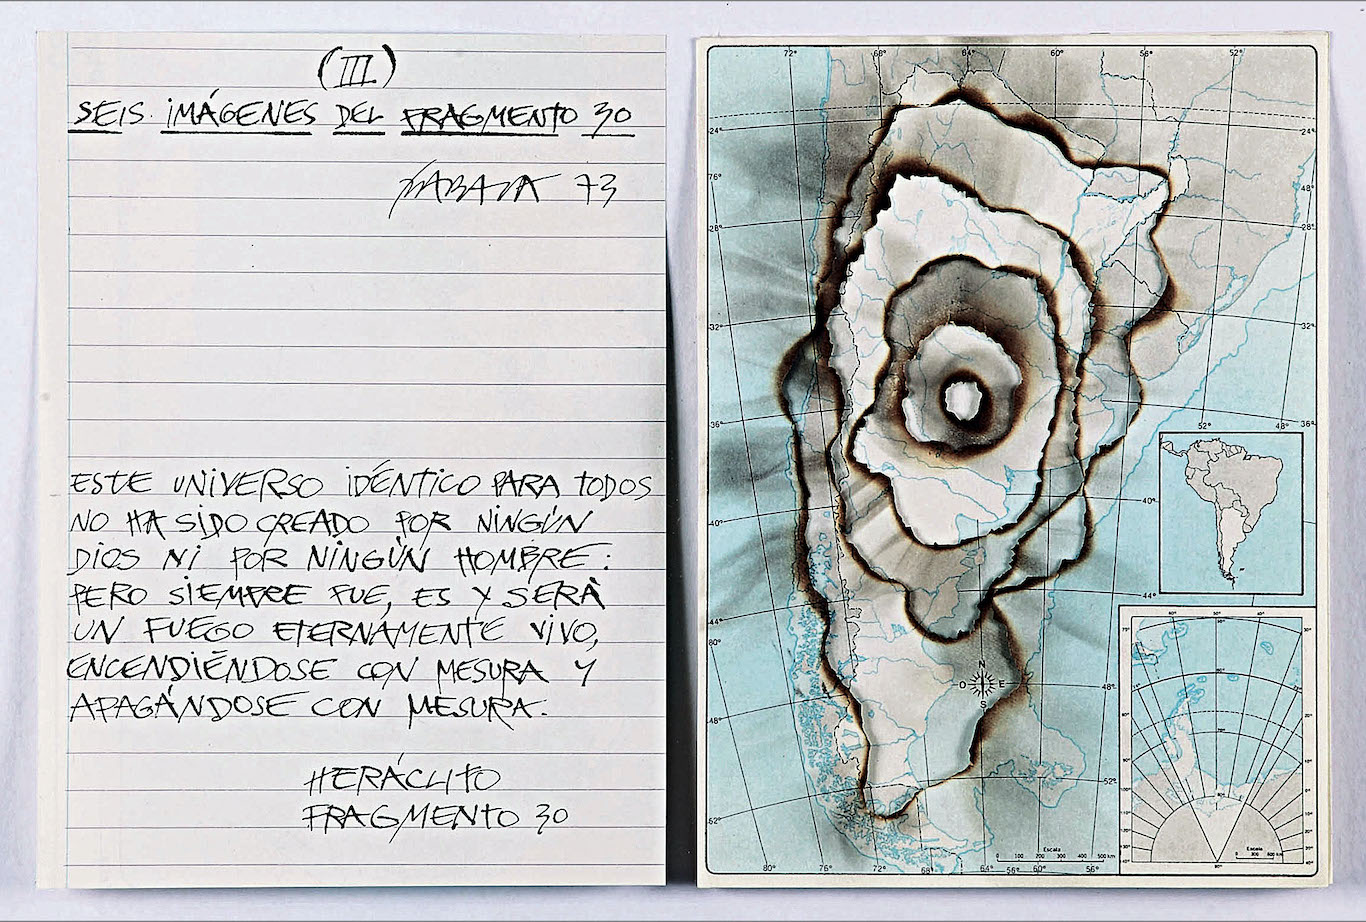 (III.)
SEIS IMÁGENES DEL FRAGMENTO 30
ZABALA 73
ESTE UNIVERSO IDÉNTICO PARA TODOS
NO HA SIDO CREADO POR NINGÚN
DIOS NI POR NINGÚN HOMBRE:
PERO SIEMPRE FUE, ES Y SERÀ
UN FUEGO ETERNAMENTE VIVO,
ENCENDIÉNDOSE CON MESURA Y
APAGÁNDOSE CON MESURA.
HERÁCLITO
FRAGMENTO 30
72° 68° 64° 60° 56° 52°
24° 24°
76° 48°
28° 28°
32° 32°
36° 52° 48° 36°
40° 40°
44° 44°
80°
N
O E
S
48° 48°
52° 52°
Escala
0 100 200 300 400 500 km
80° 76° 72° 68° 64° 56° 60° 56°
60° 50° 40°
Escala